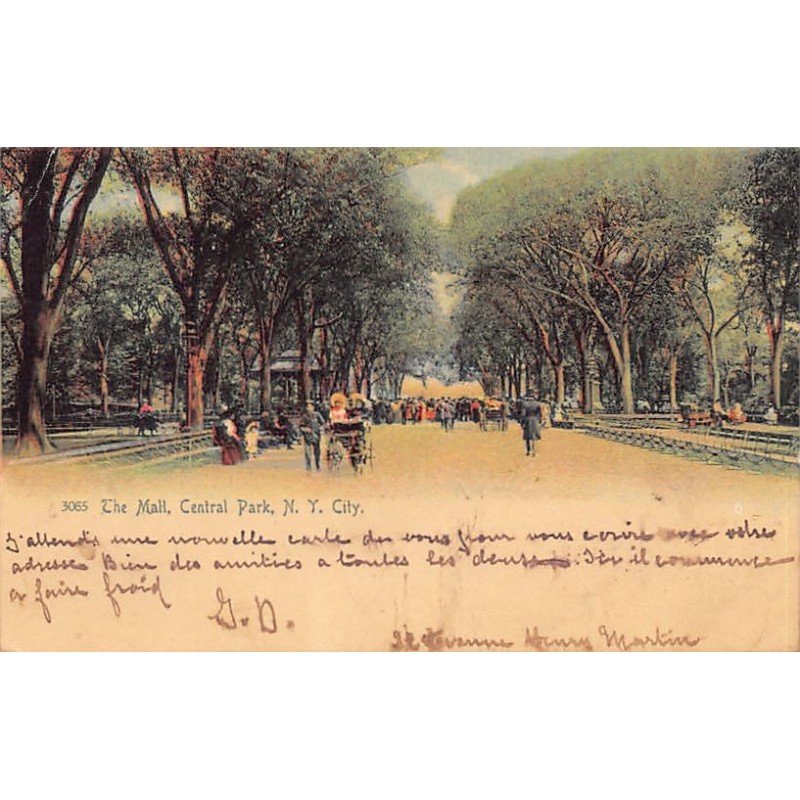 3065 The Mall, Central Park, N. Y. City.
J'attends une nouvelle carte de vous pour vous ecrire avec votre
adresse Bien des amities a toutes les deux. Ici il commence
a faire froid
G. D.
32 Avenue Henry Martin